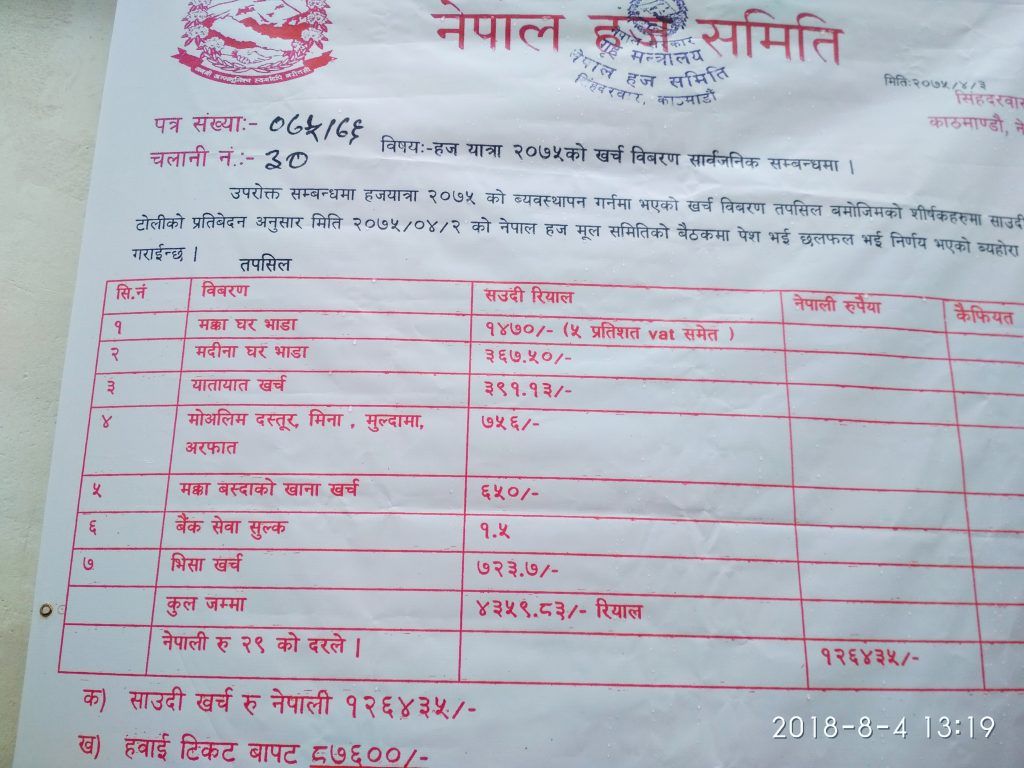 नेपाल हज समिति
नेपाल हज समिति
सिंहदरवार, काठमाडौं
मिति:२०७५/४/३
काठमाण्डौ,
पत्र संख्या:- ०७५/७६
चलानी नं.:- ३०
विषय:-हज यात्रा २०७५को खर्च विबरण सार्वजनिक सम्बन्धमा |
उपरोक्त सम्बन्धमा हजयात्रा २०७५ को ब्यवस्थापन गर्नमा भएको खर्च विबरण तपसिल बमोजिमको शीर्षकहरुमा साउदी
टोलीको प्रतिबेदन अनुसार मिति २०७५/०४/२ को नेपाल हज मूल समितिको बैठकमा पेश भई छलफल भई निर्णय भएको ब्यहोरा
गराईन्छ |
तपसिल
सि.नं विबरण सउदी रियाल नेपाली रुपैया कैफियत
१ मक्का घर भाडा १४७०/- (५ प्रतिशत vat समेत )
२ मदीना घर भाडा ३६७.५०/-
३ यातायात खर्च ३९१.१३/-
४ मोअलिम दस्तूर, मिना , मुल्दामा, ७५६/-
अरफात
५ मक्का बस्दाको खाना खर्च ६५०/-
६ बैंक सेवा सुल्क १.५
७ भिसा खर्च ७२३.७/-
कुल जम्मा ४३५९.८३/- रियाल
नेपाली रु २९ को दरले | १२६४३५/-
क) साउदी खर्च रु नेपाली १२६४३५/-
ख) हवाई टिकट बापट ८७६००/-
2018-8-4 13:19